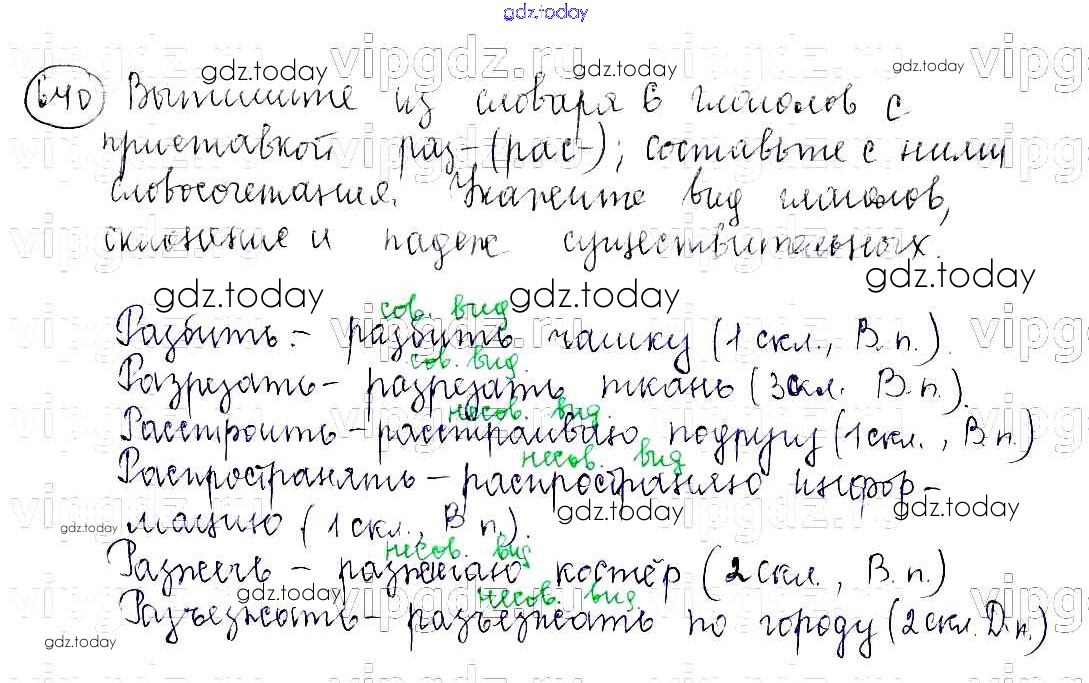 gdz.today
640 Выпишите из словаря 6 глаголов с
приставкой раз-(рас-); составьте с ними
словосочетания. Укажите вид глаголов,
склонение и падеж существительных.
gdz.today gdz.today
сов. вид
Разбить. – разбить чашку (1 скл., В.п.).
сов. вид.
Разрезать – разрезать ткань (3 скл. В.п.).
несов. вид.
Расстроить – расстраиваю подругу (1 скл., В.п.)
несов. вид
Распространять – распространяю инфор-
мацию (1 скл., В п.).
несов. вид
Разжечь – разжигаю костёр (2 скл., В.п.)
несов. вид.
Разъезжать – разъезжать по городу (2 скл. Д.п.)
gdz.today